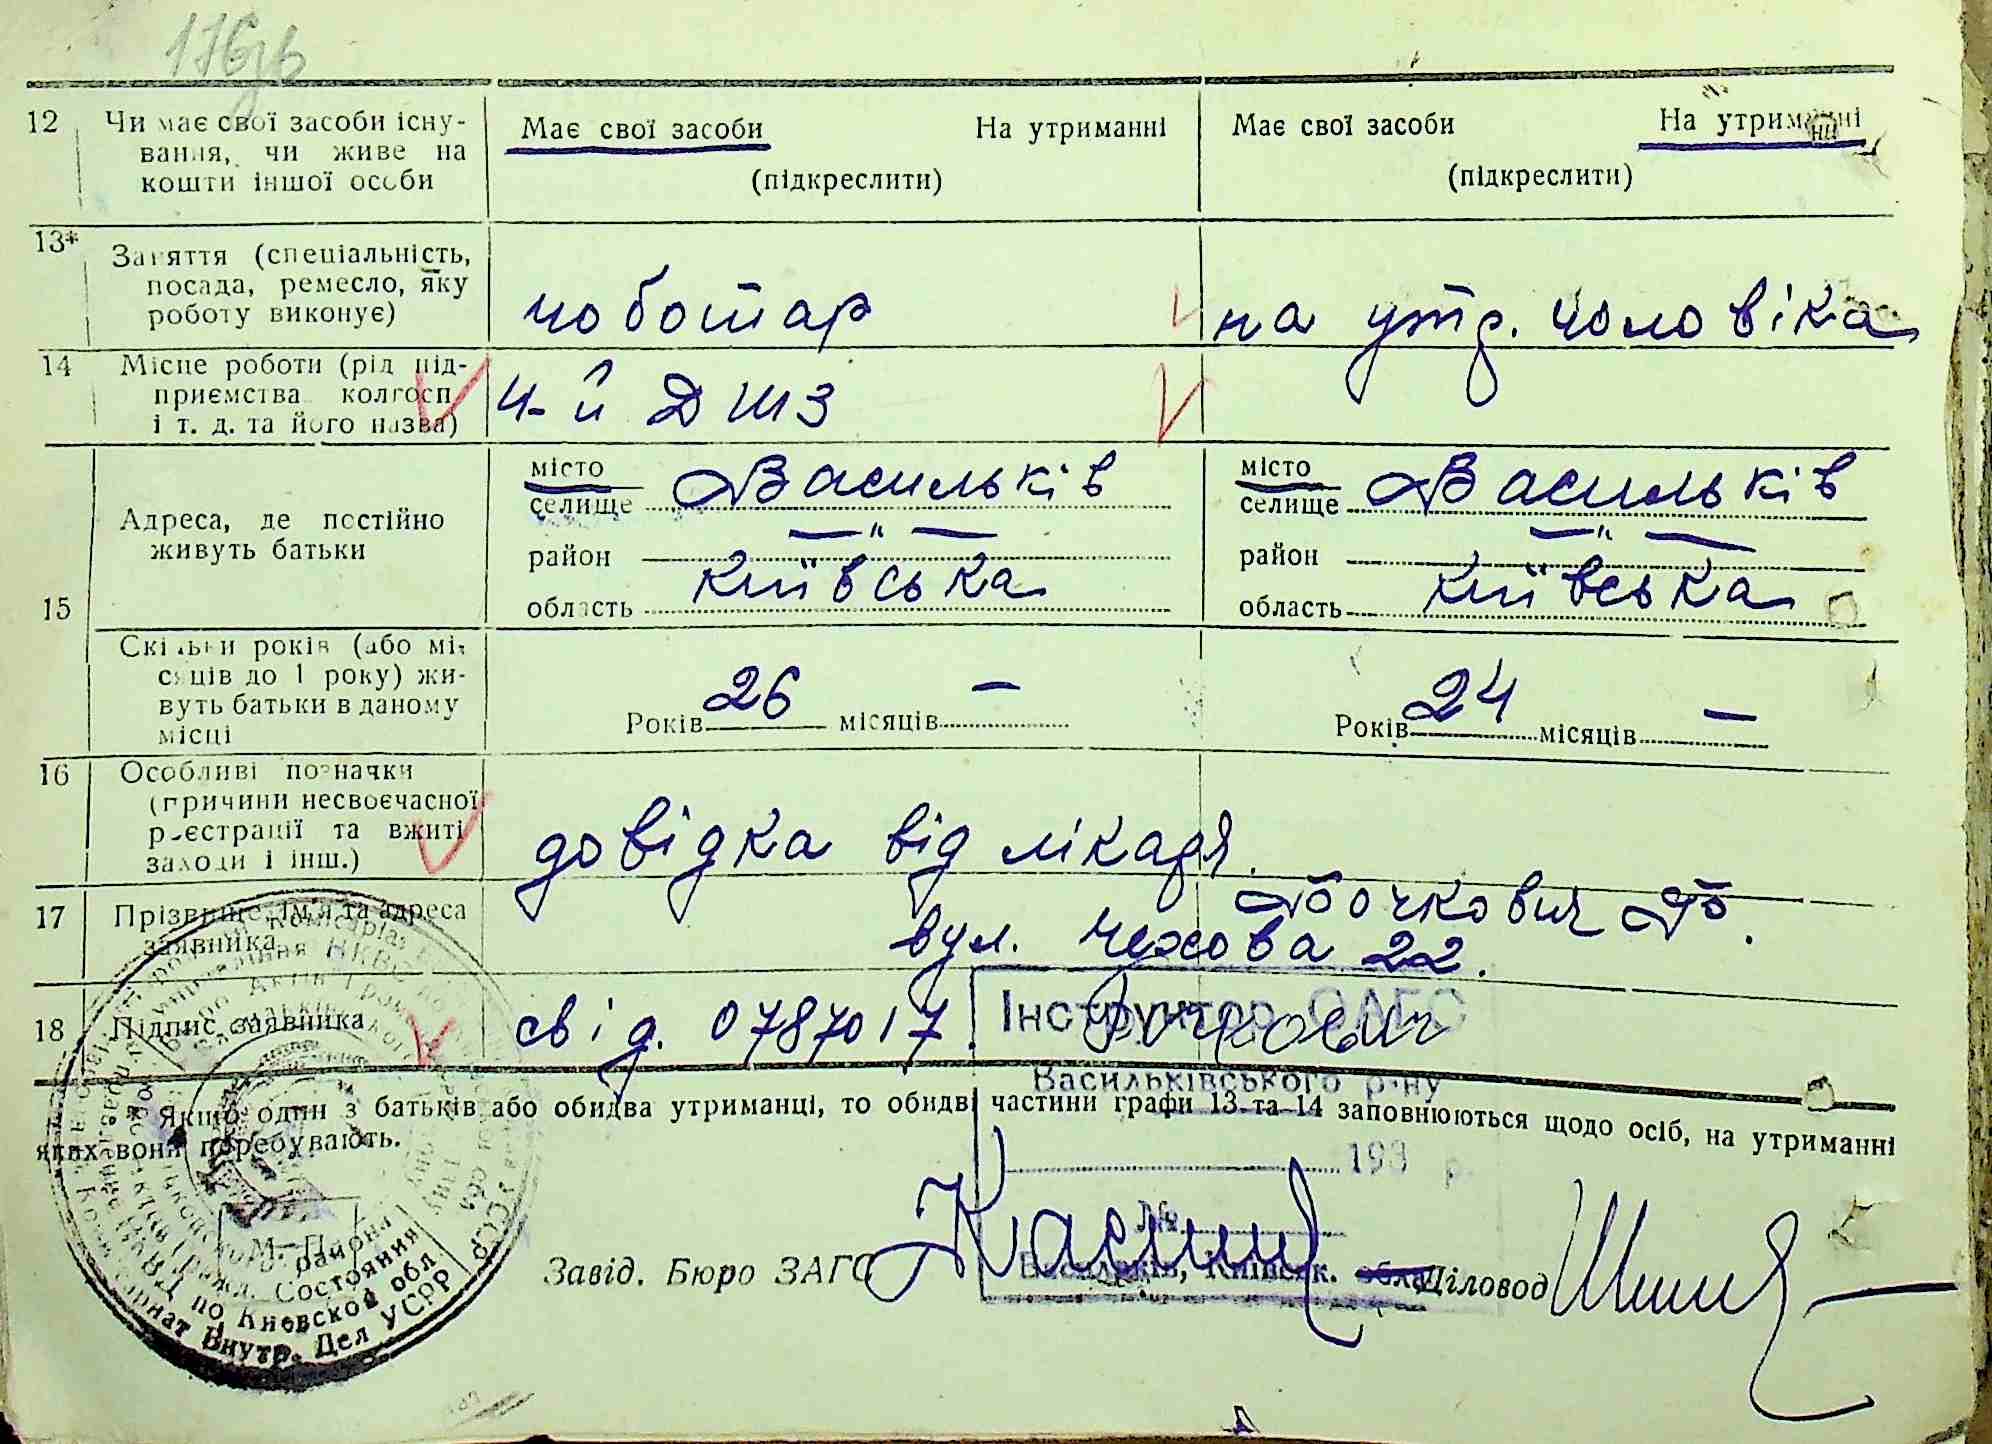 176зв
12 Чи має свої засоби існу-
вання, чи живе на
кошти іншої особи
Має свої засоби На утриманні
(підкреслити)
Має свої засоби На утриманні
(підкреслити)
13* Заняття (спеціальність,
посада, ремесло, яку
роботу виконує)
чоботар
на утр. чоловіка
14 Місце роботи (рід під-
приємства колгосп
і т. д. та його назва)
4-й ДШЗ
15 Адреса, де постійно
живуть батьки
місто
селище Васильків
район — " —
область Київська
місто
селище Васильків
район — " —
область Київська
Скільки років (або мі-
сяців до 1 року) жи-
вуть батьки в даному
місці
Років 26 місяців —
Років 24 місяців —
16 Особливі позначки
(причини несвоєчасної
реєстрації та вжиті
заходи і інш.)
довідка від лікаря.
17 Прізвище, ім'я та адреса
заявника
Бочкович Б.
вул. Чехова 22.
18 Підпис заявника
свід. 0787017. Бочкович
Інструктор ОАГС
Васильківського р-ну
* Якщо один з батьків або обидва утриманці, то обидві частини графи 13 та 14 заповнюються щодо осіб, на утриманні
яких вони перебувають.
193 р.
№
М. П.
Завід. Бюро ЗАГС
Васильків, Київськ. обл.
Діловод
района
Актов Гражд. Состояния
НКВД по Киевской обл.
Внутр. Дел УСРР